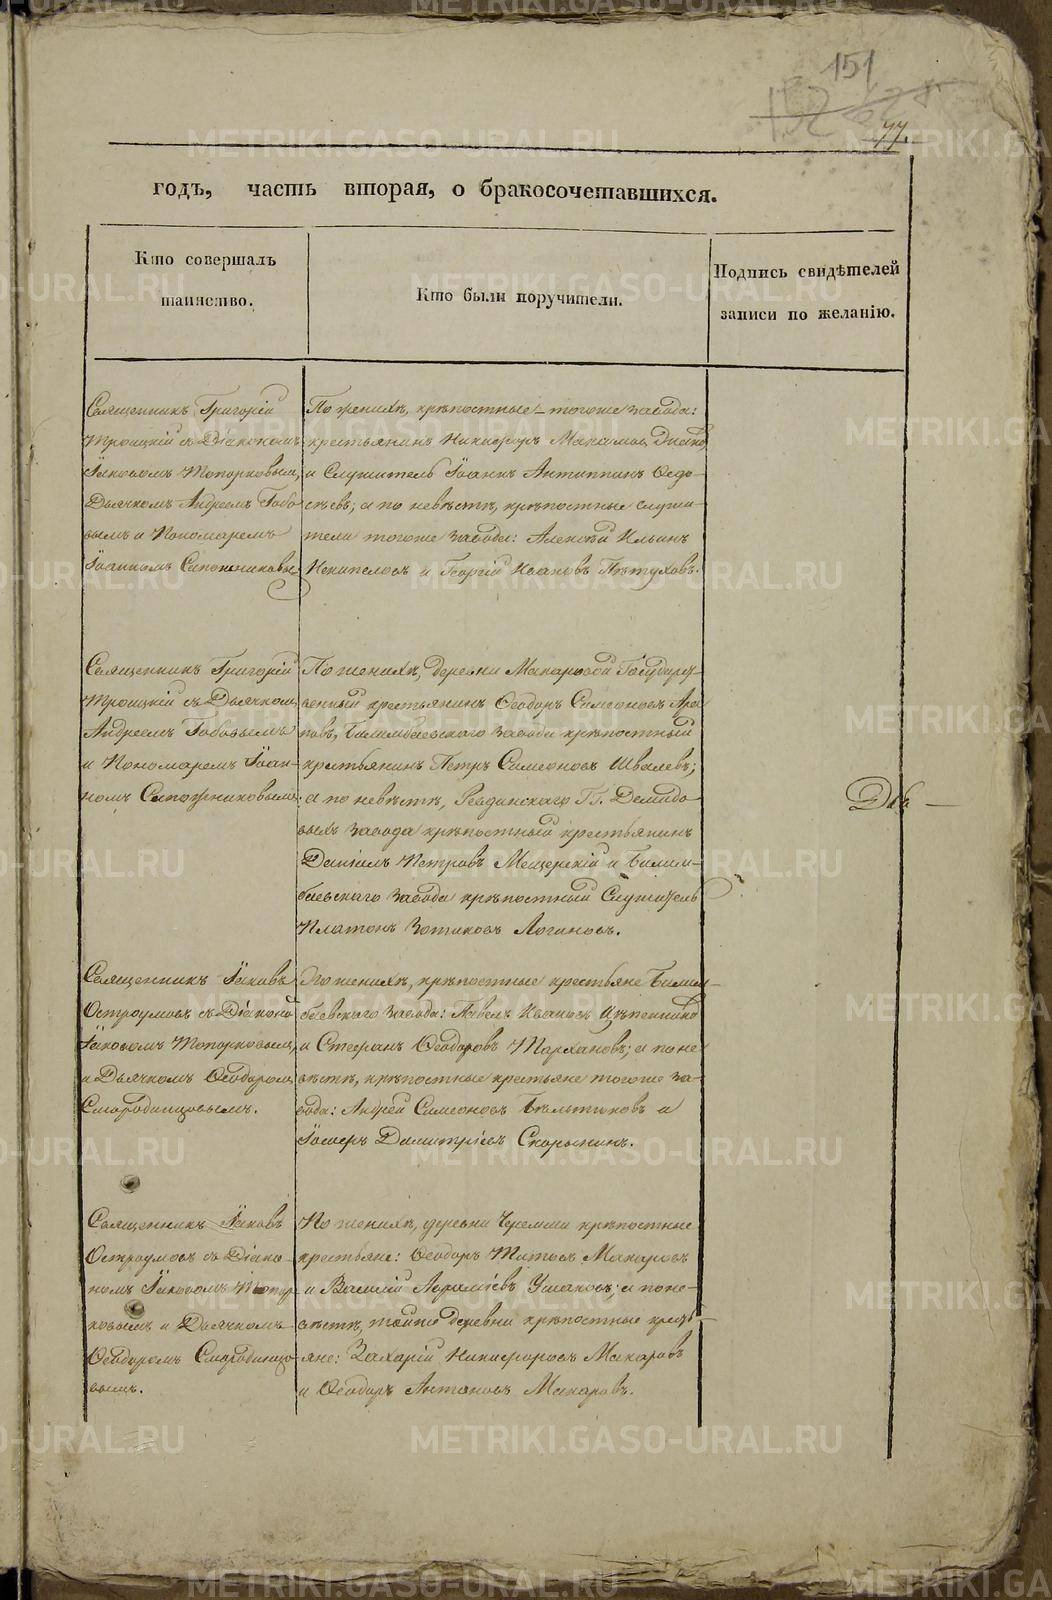 151
77.
годъ, часть вторая, о бракосочетавшихся.
Кто совершалъ
таинство.
Кто были поручители.
Подпись свидѣтелей
записи по желанію.
Священникъ Григорій
Троицкій съ Діакономъ
Іаковомъ Топорковымъ,
Дьячкомъ Андреемъ Бобо
вымъ и Пономаремъ
Іоанномъ Сапожниковы
По женихѣ, крѣпостные тогоже завода:
крестьянинъ Никифоръ
и Служитель Іоаннъ Антиппинъ Ѳедо-
сѣевъ, а по невѣстѣ, крѣпостные служи-
тели тогоже завода: Алексѣй Ильинъ
Некипеловъ и Георгій Ивановъ Пѣтуховъ.
Священникъ Григорій
Троицкій съ Дьячкомъ
Андреемъ Бобовымъ
и Пономаремъ Іоан-
номъ Сапожниковымъ
По женихѣ, деревни Макаровой Государст
венный крестьянинъ Ѳеодоръ Симеоновъ Ара
повъ, Билимбаевскаго завода крѣпостный
крестьянинъ Петръ Симеоновъ Швалевъ;
а по невѣстѣ, Ревдинскаго Гг. Демидо
выхъ завода крѣпостный крестьянинъ
Даніилъ Петровъ Мещерскій и Билим-
баевскаго завода крѣпостный Служитель
Платонъ Зотиковъ Логиновъ.
Два —
Священникъ Іаковъ
Остроумовъ съ Діакono
Іаковомъ Топорковымъ,
и Дьячкомъ Ѳеодоромъ
Смородинцовымъ.
По женихѣ, крѣпостные крестьяне Билим-
баевскаго завода: Павелъ Ивановъ
и Стефанъ Ѳеодоровъ Тархановъ; а по не
вѣстѣ, крѣпостные крестьяне тогоже за-
вода: Андрей Симеоновъ Бѣльтюковъ и
Іосифъ Димитріевъ Скорынинъ.
Священникъ Іаковъ
Остроумовъ съ Діако-
номъ Іаковомъ Топор
ковымъ и Дьячкомъ
Ѳеодоромъ Смородинцо
вымъ.
По женихѣ, деревни Черемши крѣпостные
крестьяне: Ѳеодоръ Титовъ Макаровъ
и Василій Ушаковъ; а по не-
вѣстѣ, тойже деревни крѣпостные крестья-
яне: Захарій Никифоровъ Макаровъ
и Ѳеодоръ Антоновъ Макаровъ.